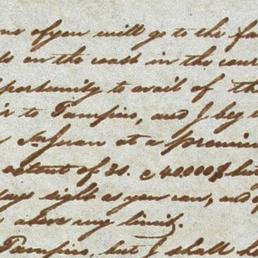 of you will go to the
on the coast in the
opportunity to avail of the
to Tampico, and I beg
Sn Juan at a premium
extent of 30. a 40000$ but
sight as you can, and
above my limit.
Tampico, but I shall